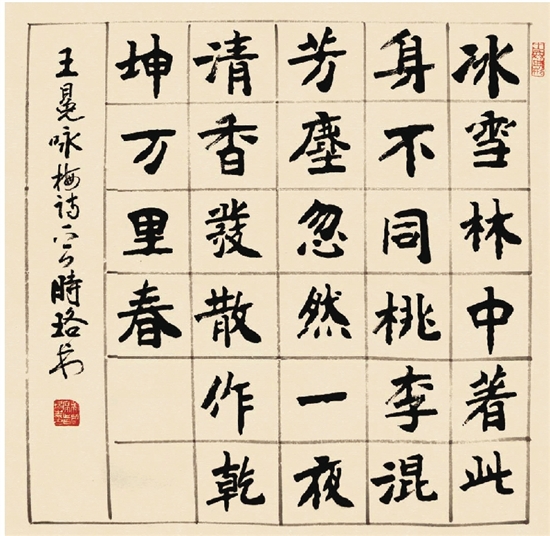 冰雪林中著此
身不同桃李混
芳塵忽然一夜
清香發散作乾
坤万里春
王冕咏梅诗 時珞书